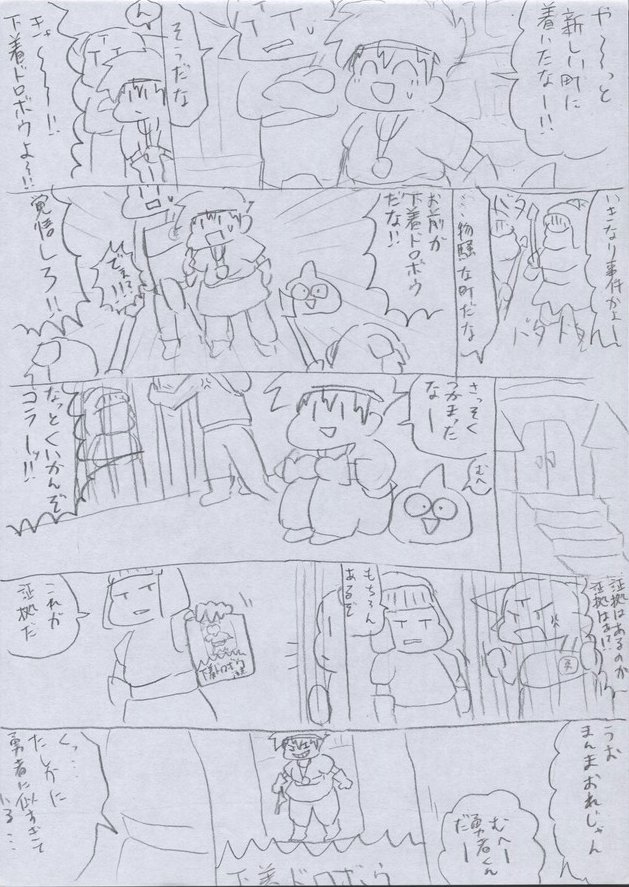 や〜〜っと
新しい町に
着いたなー!!
そうだな
ん
きゃ〜〜〜!!
下着ドロボウよ〜!!
いきなり事件かよー
バタ
バタバタ
…物騒な町だな
お前が
下着ドロボウ
だな!!
でぇ!?
覚悟しろ!!
さっそく
つかまった
なー
むへー
なっとくいかんぞ
コラーッ!!
証拠はあるのか
証拠はぁ!!
もちろん
あるぞ
これが
証拠だ
下着ドロボウ
うお
まんまおれじゃん
むへー
勇者くん
だー
下着ドロボウ
くっ…
たしかに
勇者に似すぎて
いる…